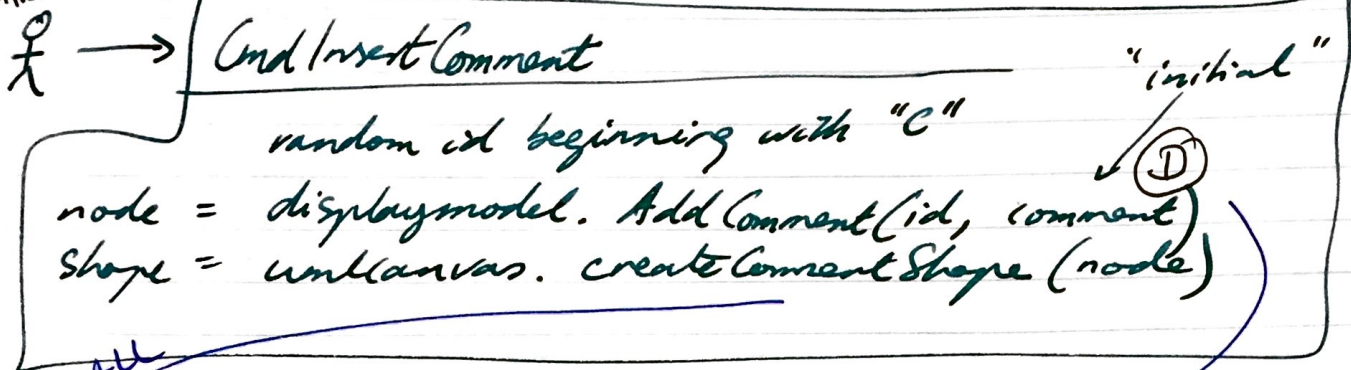 CmdInsertComment
"initial"
random id beginning with "C"
D
node = displaymodel. AddComment(id, comment)
shape = umlcanvas. createCommentShape (node)